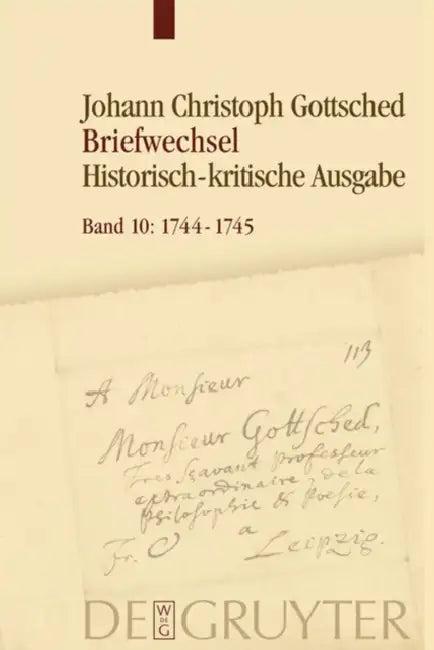 Johann Christoph Gottsched
Briefwechsel
Historisch-kritische Ausgabe
Band 10: 1744-1745
113
A Monsieur
Monsieur Gottsched,
Tres Sçavant Professeur
extraordinaire de la
Philosophie & Poesie,
a
Fr. Leipzig.
DE GRUYTER
W
DE
G